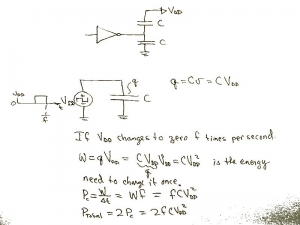 V_DD
C
C
V_DD
0
1/f
t
V_DD
q
C
q = Cv = C V_DD
If V_DD changes to zero f times per second.
W = q V_DD = C V_DD V_DD = C V_DD^2 is the energy
q
need to charge it once.
P_c = W/Δt = Wf = f C V_DD^2
P_total = 2 P_c = 2f C V_DD^2